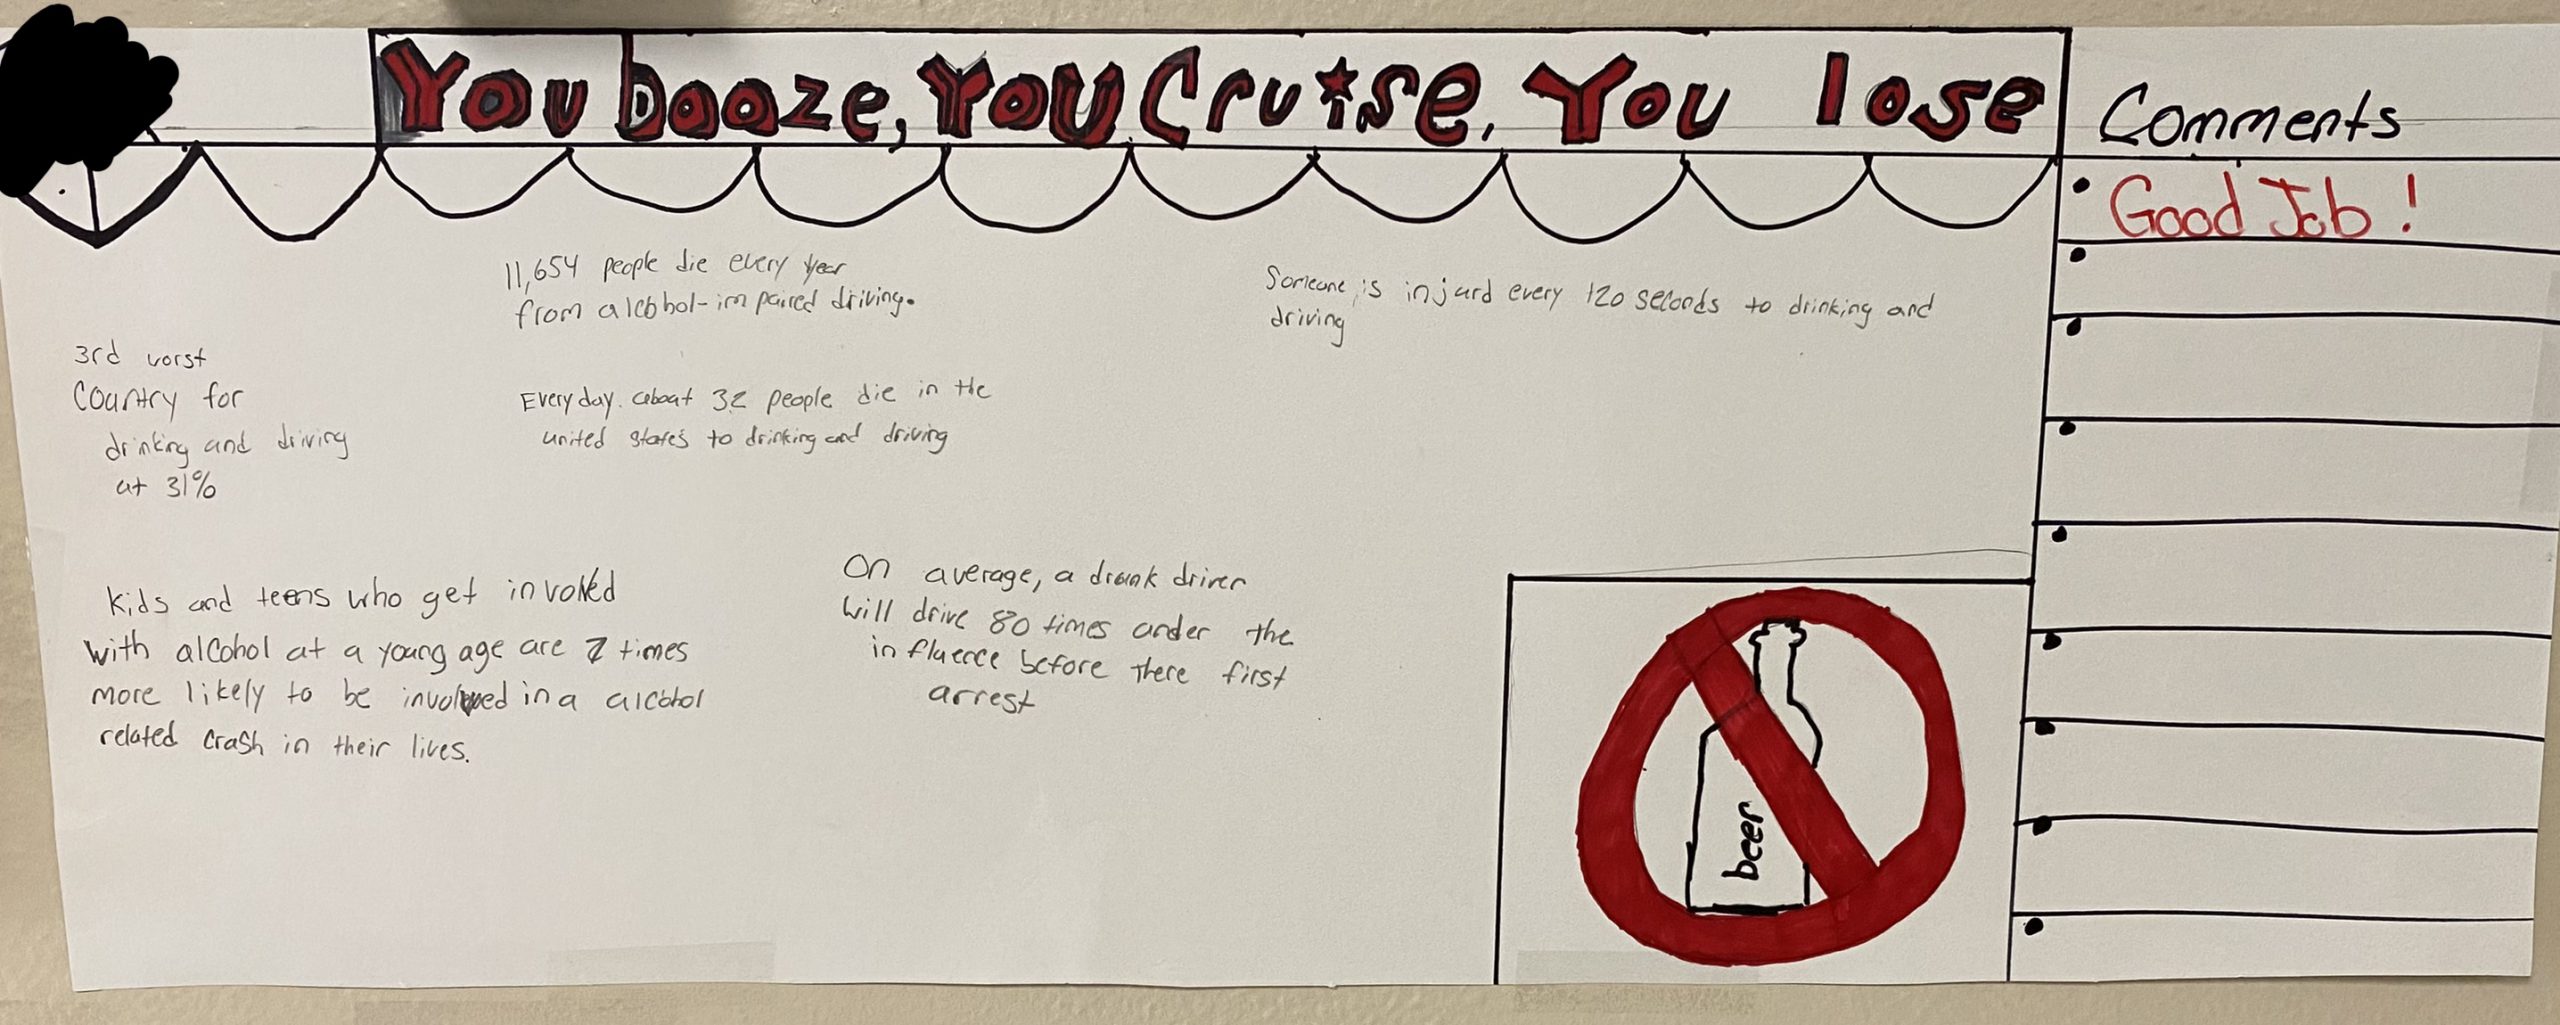 You booze, You Cruise, You lose
Comments
Good Job!
11,654 people die every year
from alcohol-impaired driving.
Someone is injurd every 120 seconds to drinking and
driving
3rd worst
Country for
drinking and driving
at 31%
Everyday about 32 people die in the
united states to drinking and driving
Kids and teens who get involved
with alcohol at a young age are 7 times
more likely to be involved in a alcohol
related crash in their lives.
On average, a drunk driver
will drive 80 times under the
influence before there first
arrest
beer